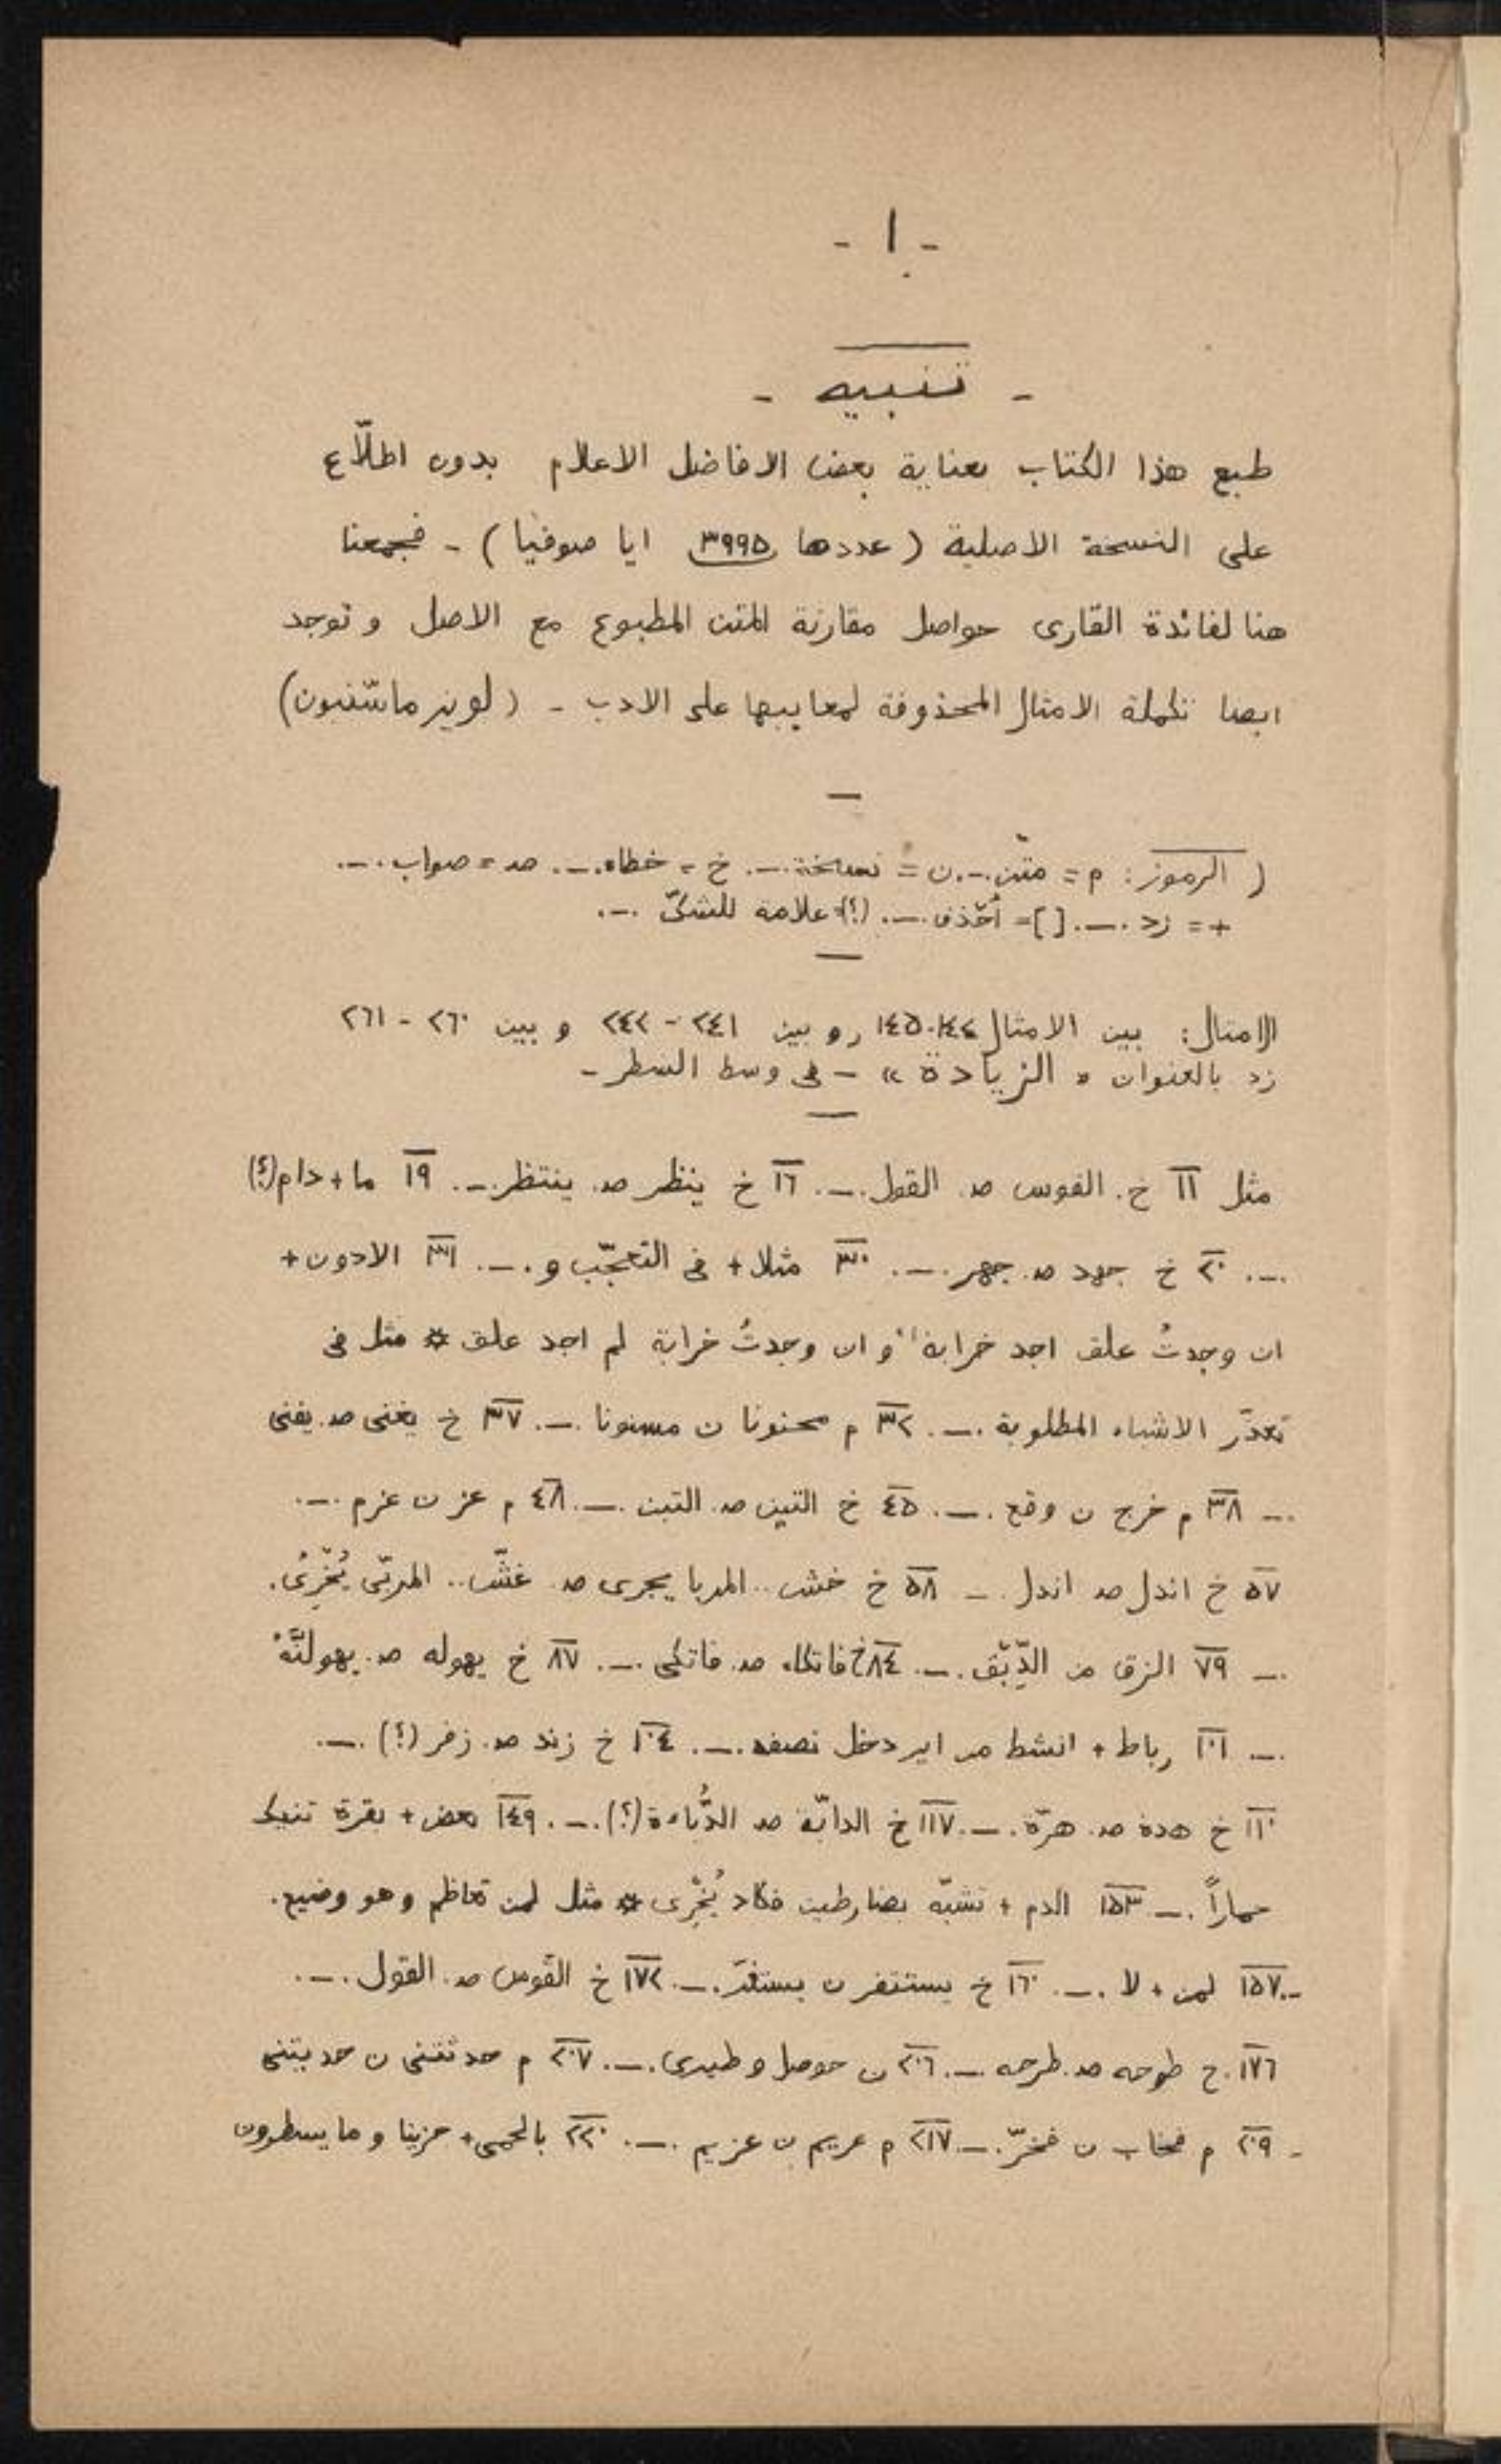 - ١ -
- تنبيه -
طبع هذا الكتاب بعناية بعض الافاضل الاعلام بدون اطلّاع
على النسخة الاصلية (عددها ٣٩٩٥ ايا صوفيا) - فجمعنا
هنا لفائدة القارى حواصل مقارنة المتن المطبوع مع الاصل و توجد
ايضا تكملة الامثال المحذوفة لمعايبها على الادب - (لويز ماسّنيون)
( الرموز: م = متن .-. ن = نسخة .-. خ = خطاء .-. صـ = صواب .-.
+ = زد .-. [ ] = أحذف .-. (؟) علامة للشكّ .-.
الامثال: بين الامثال ١٤٤-١٤٥ و بين ٢٤١ - ٢٤٢ و بين ٢٦٠ - ٢٦١
زد بالعنوان « الزيادة » - فى وسط السطر -
مثل ١١ خ. القوس صـ القول .-. ١٦ خ ينظر صـ ينتظر .-. ١٩ ما + دام (؟)
.-. ٢٠ خ جهد صـ جهر .-. ٣٠ مثلا + فى التعجّب و .-. ٣١ الادون +
ان وجدتُ علف اجد خرابة و ان وجدتُ خرابة لم اجد علف * مثل فى
تعذّر الاشياء المطلوبة .-. ٣٢ م محنونا ن مسنونا .-. ٣٧ خ يغنى صـ يفنى
.-. ٣٨ م خرج ن وقع .-. ٤٥ خ التين صـ التبن .-. ٤٨ م عز ن عزم .-.
٥٧ خ اندل صـ اندل - ٥٨ خ خش .. المربا يجرى صـ غشّ .. المربّى يُخْرِئُ.
.-. ٧٩ الزق من الدِّبْق .-. ٨٤ خ فاتكاء صـ فاتكى .-. ٨٧ خ يهوله صـ يهولنَّهُ
.-. ١٠١ رباط + انشط من اير دخل نصفه .-. ١٠٤ خ زند صـ زفر (؟) .-.
١١٠ خ هدة صـ هرّة .-. ١١٧ خ الدابّة صـ الدُّباءة (؟) .-. ١٤٩ بعض + بقرة تنيك
حماراً .- ١٥٣ الدم + تشبّه بضارطين فكاد يُخْرِى * مثل لمن تعاظم وهو وضيع.
-. ١٥٧ لمن + لا .-. ١٦٠ خ يستنفر ن يستفزّ .-. ١٧٢ خ القوس صـ القول .-.
١٧٦ خ طوحه صـ طرحه .-. ٢٠٦ ن حوصل وطيرى .-. ٢٠٧ م حدثتنى ن
- ٢٠٩ م ن فخرّ .- ٢١٧ م عريم ن عزيم .-. ٢٢٠ بالحمى + حزينا و ما يسطرون